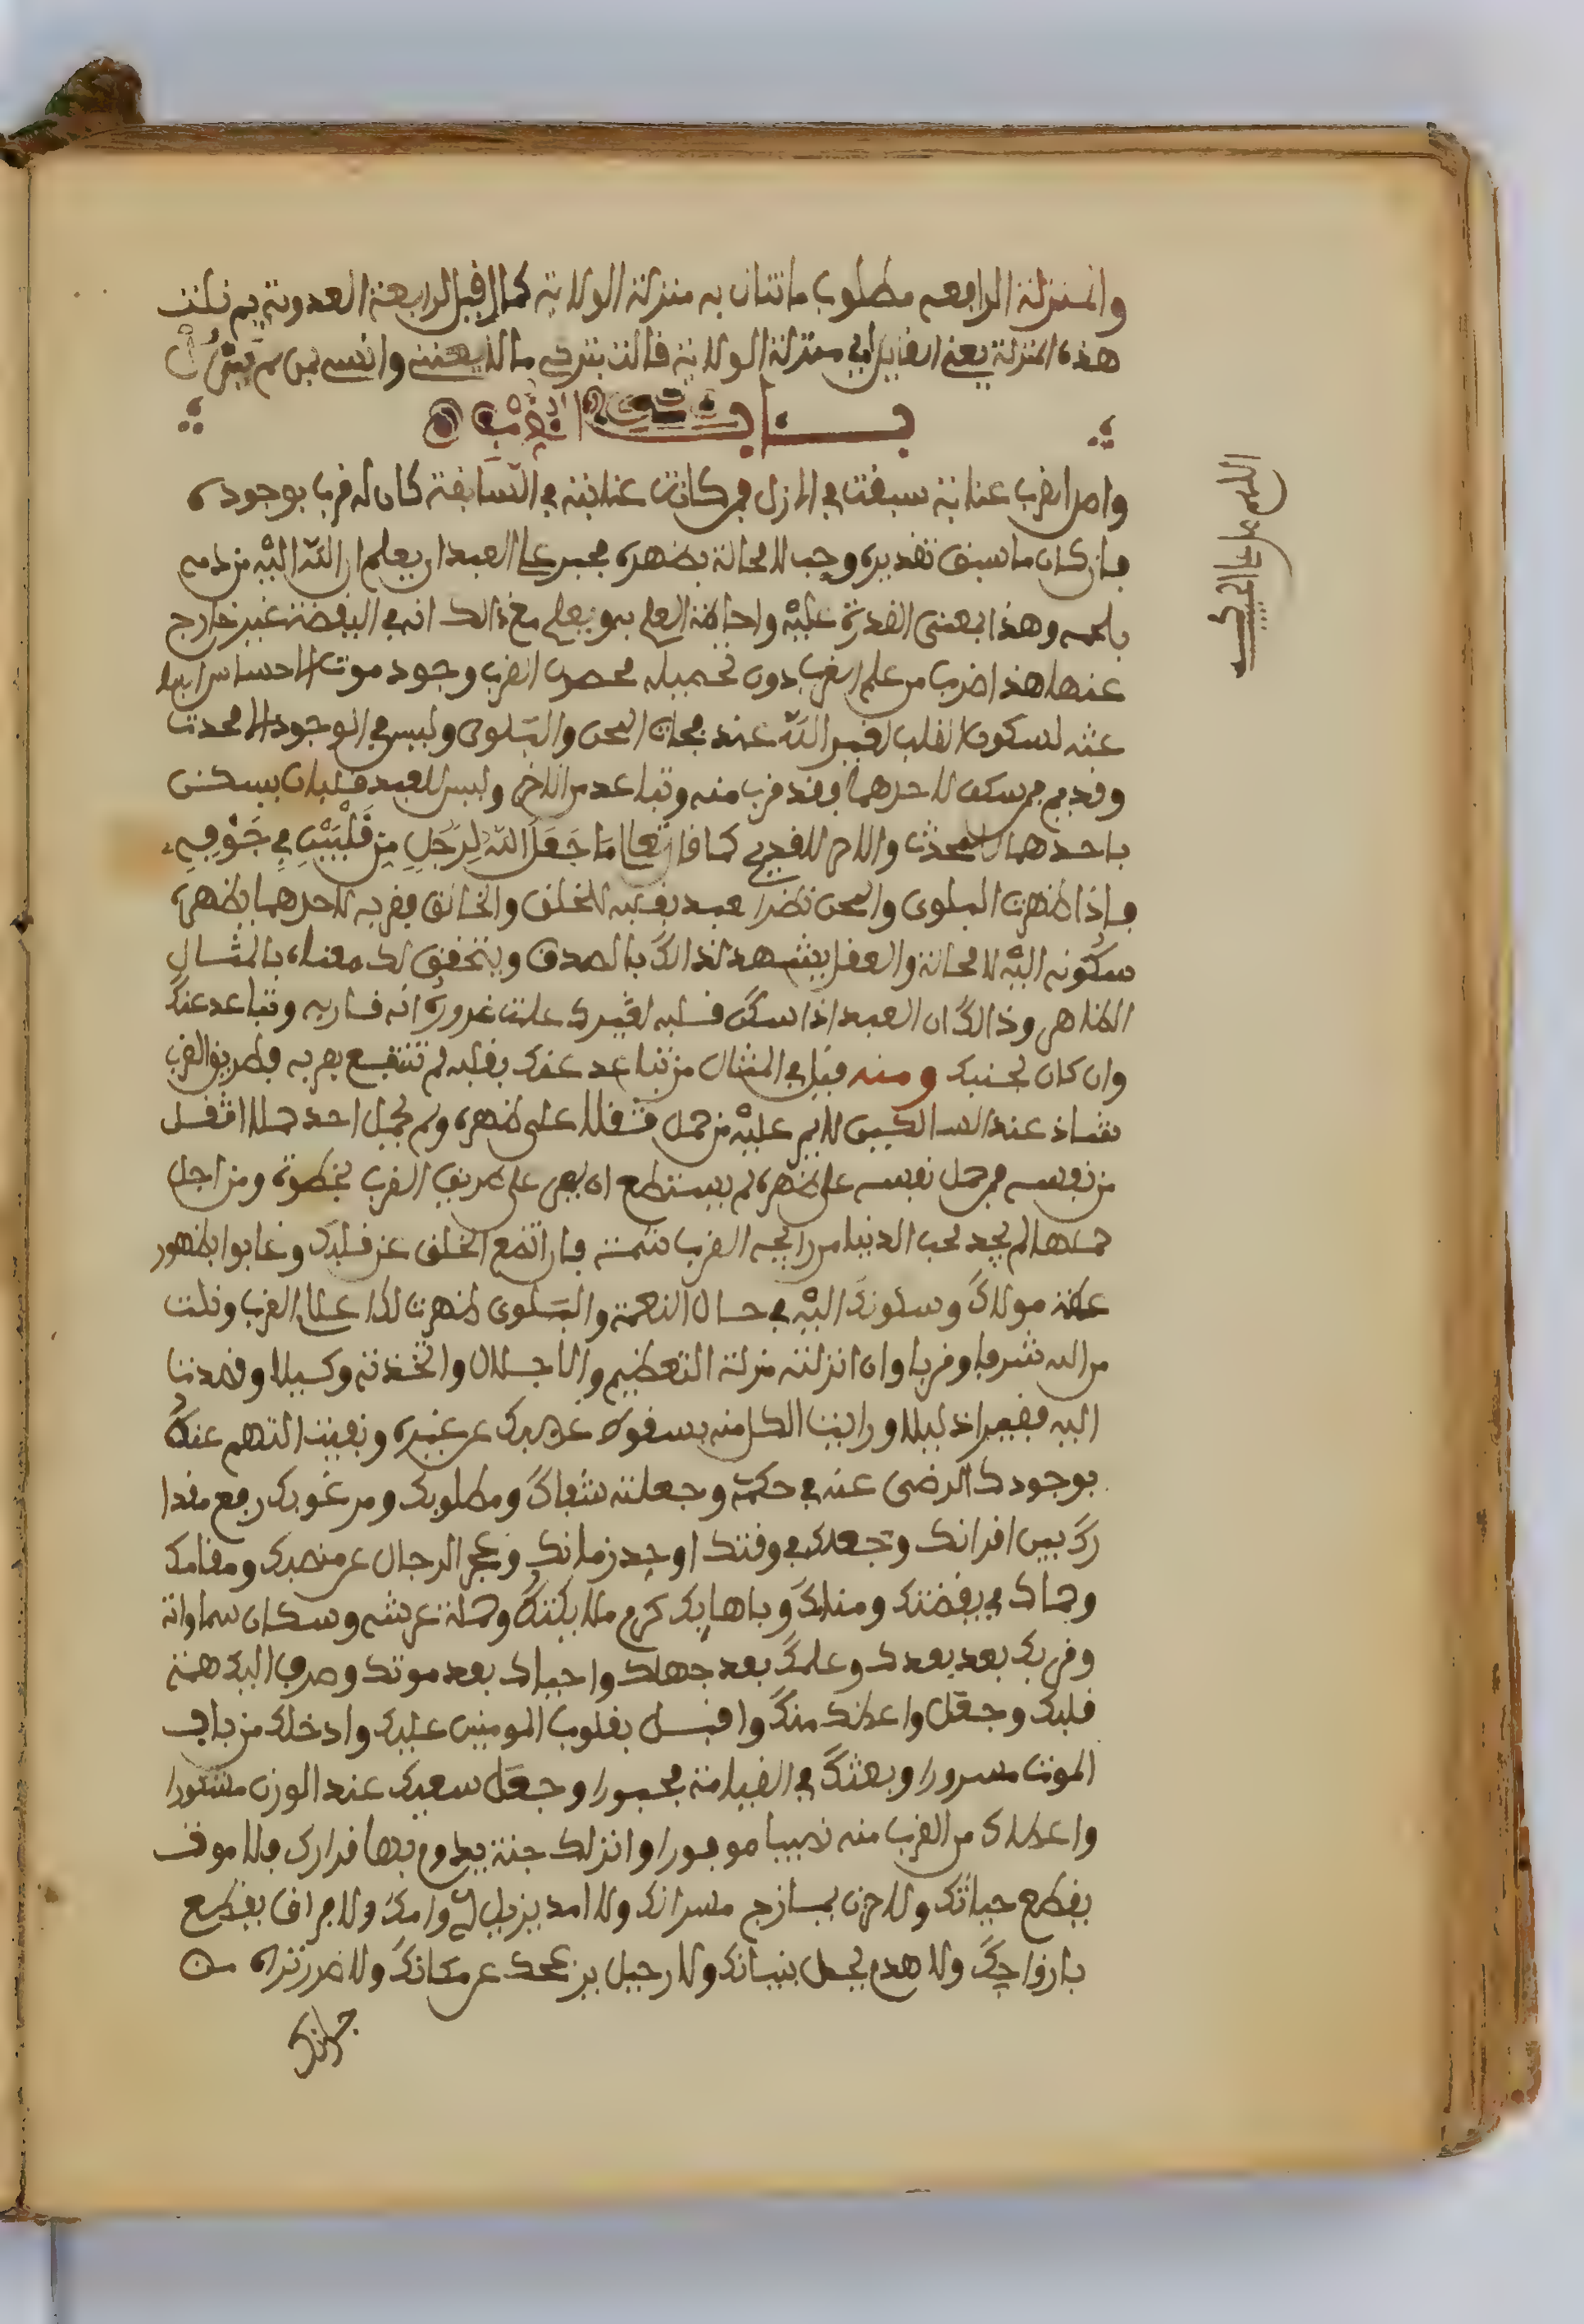 والمنزلة الرابعه مطلوب ما تنال به منزلة الولاية كما قيل لرابعة العدوية بم نلت
هذه المنزلة يعني منزلة الولاية قالت بتركي ما لا يعنيني وانسي بمن لم يزل
باب القرب
واصل القرب عناية سبقت في الازل فمن كانت عنايته في السابقة كان له قرب بوجوده
فان كان ما سبق تقديره وجب لا محالة بظهره فيجبر على العبد ان يعلم ان الله اليه من دمه
بلحمه وهذا بمعنى القدرة عليه واحاطة العلم به ويعلم مع ذالك انه في القبضة غير خارج
عنها هذا ضرب من علم القرب دون تحصيله فحصول القرب وجود موت الاحساس
عنه لسكون القلب لغير الله عند المحن والبلوى وليس في الوجود الا محدث
وقديم فمن سكن لاحدهما فقد قرب منه وتباعد من الاخر وليس للعبد قلبان يسكن
باحدهما للمحدث والاخر للقديم كما قال تعالى مَا جَعَلَ اللهُ لِرَجُلٍ مِن قَلْبَيْنِ فِي جَوْفِهِ
فإذا ظهرت البلوى والمحن نظر العبد بقلبه للخلق والخالق فقربه لاحدهما بظهر
سكونه اليه لا محالة والعقل يشهد لذالك بالصدق ويتحقق لك معناه بالمثال
الظاهر وذالك ان العبد اذا سكن قلبه لغيرك علمت ضرورة انه قاربه وتباعد عنك
وان كان بجنبك ومنه قيل في المثال من تباعد عنك بقلبه لم تنتفع بقربه وطريق القرب
عند السالكين لا يمر عليه من حمل ثقلا على ظهره ولم يحمل احد حملا اثقل
من نفسه فمن حمل نفسه على ظهره لم يستطع ان يمر على طريق القرب بخطوة ومن اجل
حملها لم يجد محب الدنيا من رايحة القرب شمة فان ارتفع الخلق عن قلبك وغابوا بظهور
عظمة مولاك وسكونك اليه في حال النعمة والبلوى ظهرت لك اعلام القرب ونلت
من الله شرفا وقربا وان انزلته منزلة التعظيم والاجلال واتخذته وكيلا وقصدت
اليه فقيرا ذليلا ورايت الكل منه بسقوط عن غيره ونفيت التهم عنه
بوجودك الرضى عنه في حكمه وجعلته شفاك ومطلوبك ومرغوبك رفع مقدا
رك بين اقرانك وجعلك في وقتك اوحد زمانك وعجز الرجال عن منصبك ومقامك
وحماك في يقضتك ومنامك وباهابك كرم ملايكتك وحملة عرشه وسكان سماواته
وقربك بعد بعدك وعلمك بعد جهلك واحياك بعد موتك وصرف اليك همة
قلبك وجعل واعطاك منك واقبل بقلوب المومنين عليك وادخلك من باب
الموت مسرورا وبعثك في القيامة محبورا وجعل سعيك عند الوزن مشكورا
واعطاك من القرب منه نصيبا موفورا وانزلك جنة يدوم بها قرارك فلا موت
يقطع حياتك ولا حزن يمازج مسراتك ولا امد يزيل دوامك ولا فراق يقطع
بازواجك ولا هدم يحل بنيانك ولا رحيل يزعجك عن مكانك ولا ضرر تراه من
جيرانك
اللهم صل على الحبيب